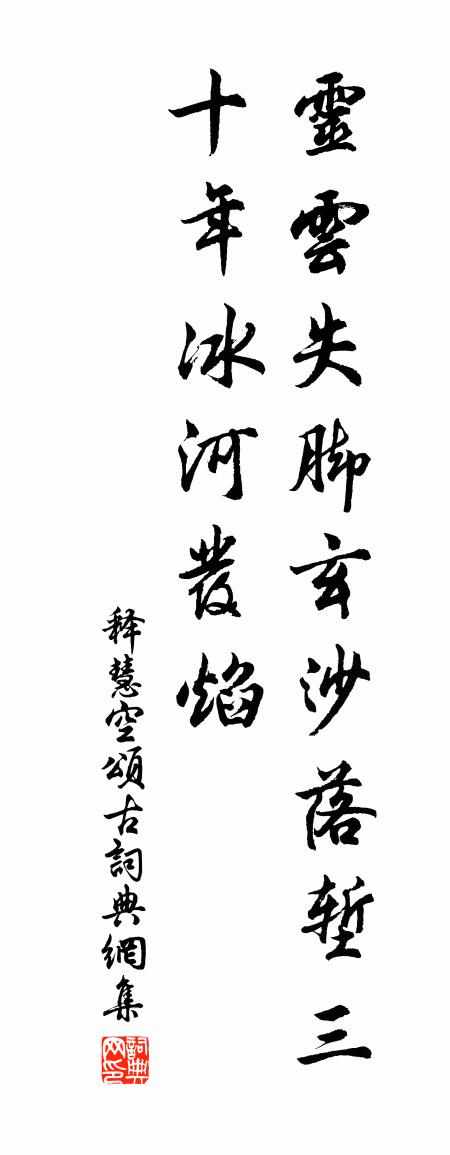 靈雲失脚玄沙落塹三
十年冰河發焰
释慧空頌古詞典網集
詞典网印